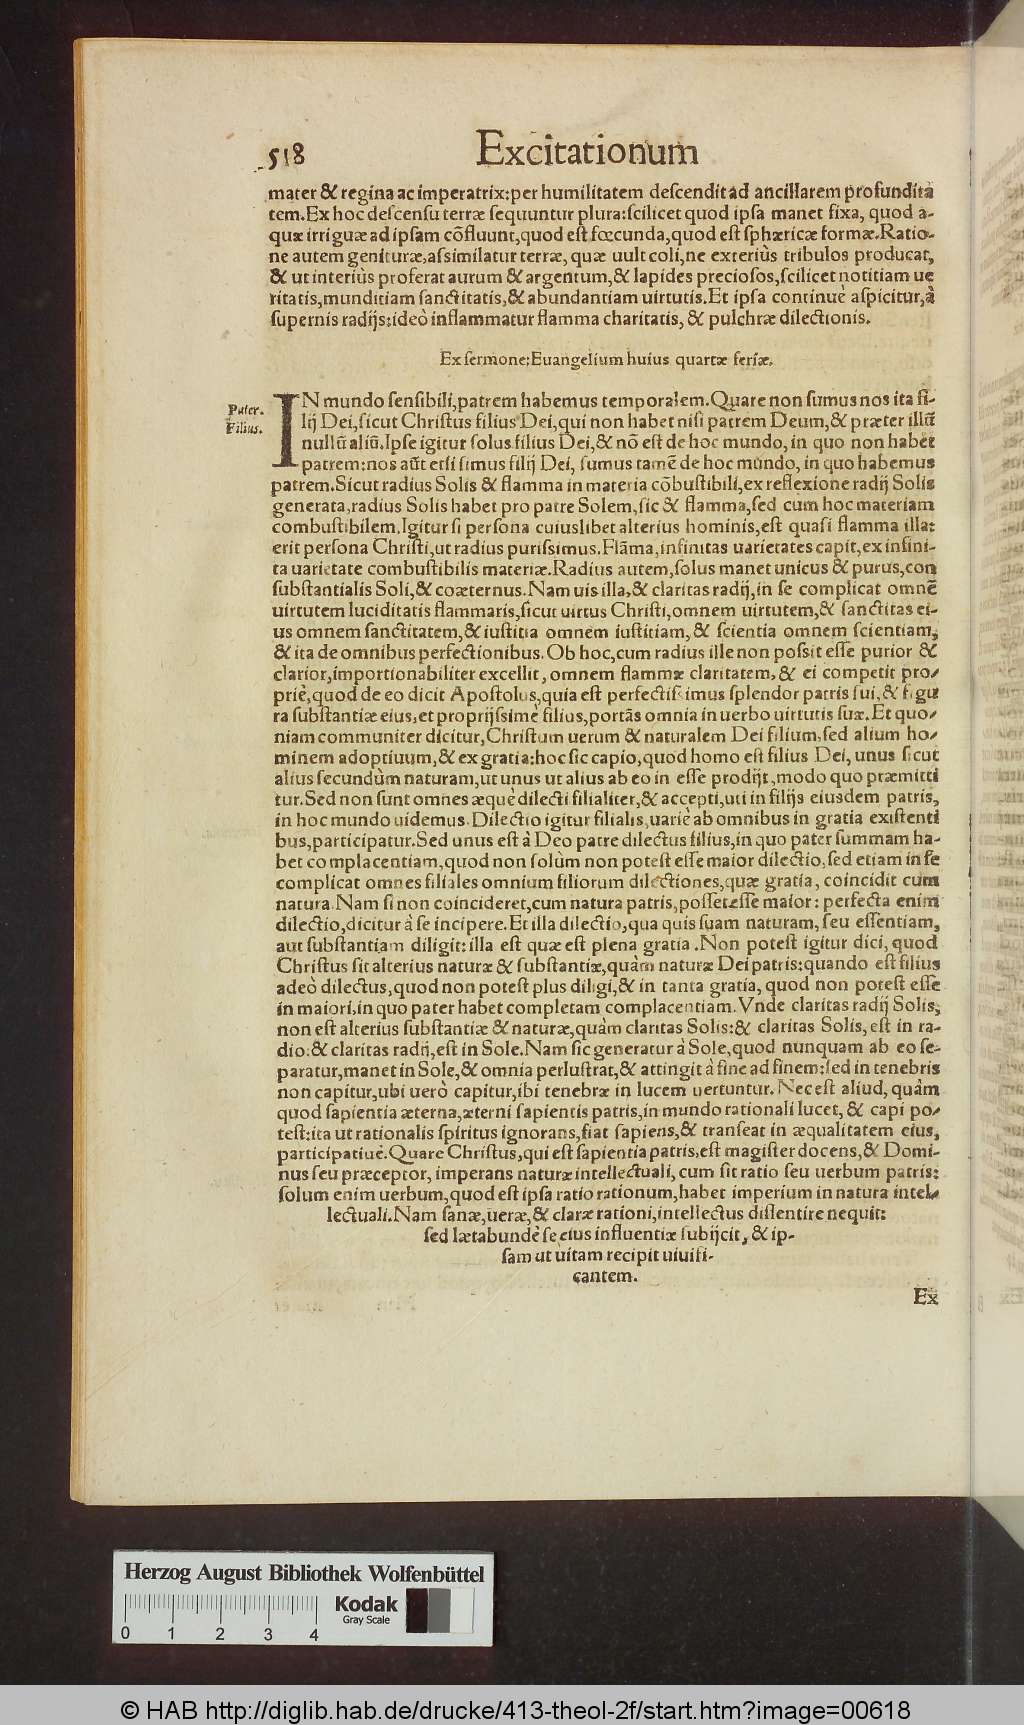 518 Excitationum
mater & regina ac imperatrix: per humilitatem descendit ad ancillarem profundita
tem. Ex hoc descensu terræ sequuntur plura: scilicet quod ipsa manet fixa, quod a-
quæ irriguæ ad ipsam cōfluunt, quod est fœcunda, quod est sphæricæ formæ. Ratio-
ne autem genituræ, assimilatur terræ, quæ uult coli, ne exteriùs tribulos producat,
& ut interiùs proferat aurum & argentum, & lapides preciosos, scilicet notitiam ue
ritatis, munditiam sanctitatis, & abundantiam uirtutis. Et ipsa continuè aspicitur, à
supernis radijs: ideò inflammatur flamma charitatis, & pulchræ dilectionis.
Ex sermone: Euangelium huius quartæ feriæ.
Pater.
Filius.
IN mundo sensibili, patrem habemus temporalem. Quare non sumus nos ita fi-
lij Dei, sicut Christus filius Dei, qui non habet nisi patrem Deum, & præter illū
nullū aliū. Ipse igitur solus filius Dei, & nō est de hoc mundo, in quo non habet
patrem: nos aūt etsi simus filij Dei, sumus tamē de hoc mundo, in quo habemus
patrem. Sicut radius Solis & flamma in materia cōbustibili, ex reflexione radij Solis
generata, radius Solis habet pro patre Solem, sic & flamma, sed cum hoc materiam
combustibilem. Igitur si persona cuiuslibet alterius hominis, est quasi flamma illa:
erit persona Christi, ut radius purissimus. Flāma, infinitas uarietates capit, ex infini-
ta uarietate combustibilis materiæ. Radius autem, solus manet unicus & purus, con
substantialis Soli, & coæternus. Nam uis illa, & claritas radij, in se complicat omnē
uirtutem luciditatis flammaris, sicut uirtus Christi, omnem uirtutem, & sanctitas ei-
us omnem sanctitatem, & iustitia omnem iustitiam, & scientia omnem scientiam,
& ita de omnibus perfectionibus. Ob hoc, cum radius ille non possit esse purior &
clarior, importionabiliter excellit, omnem flammæ claritatem, & ei competit pro-
priè, quod de eo dicit Apostolus, quia est perfectissimus splendor patris sui, & figu
ra substantiæ eius, et proprijssimè filius, portās omnia in uerbo uirtutis suæ. Et quo-
niam communiter dicitur, Christum uerum & naturalem Dei filium, sed alium ho-
minem adoptiuum, & ex gratia: hoc sic capio, quòd homo est filius Dei, unus sicut
alius secundùm naturam, ut unus ut alius ab eo in esse prodijt, modo quo præmitti
tur. Sed non sunt omnes æquè dilecti filialiter, & accepti, uti in filijs eiusdem patris,
in hoc mundo uidemus. Dilectio igitur filialis, uariè ab omnibus in gratia existenti
bus, participatur. Sed unus est à Deo patre dilectus filius, in quo pater summam ha-
bet complacentiam, quod non solùm non potest esse maior dilectio, sed etiam in se
complicat omnes filiales omnium filiorum dilectiones, quæ gratia, coincidit cum
natura. Nam si non coincideret, cum natura patris, posset esse maior: perfecta enim
dilectio, dicitur à se incipere. Et illa dilectio, qua quis suam naturam, seu essentiam,
aut substantiam diligit: illa est quæ est plena gratia. Non potest igitur dici, quod
Christus sit alterius naturæ & substantiæ, quàm naturæ Dei patris: quando est filius
adeò dilectus, quod non potest plus diligi, & in tanta gratia, quod non potest esse
in maiori, in quo pater habet completam complacentiam. Vnde claritas radij Solis,
non est alterius substantiæ & naturæ, quàm claritas Solis: & claritas Solis, est in ra-
dio: & claritas radij, est in Sole. Nam sic generatur à Sole, quod nunquam ab eo se-
paratur, manet in Sole, & omnia perlustrat, & attingit à fine ad finem: sed in tenebris
non capitur, ubi uerò capitur, ibi tenebræ in lucem uertuntur. Nec est aliud, quàm
quod sapientia æterna, æterni sapientis patris, in mundo rationali lucet, & capi po-
test: ita ut rationalis spiritus ignorans, fiat sapiens, & transeat in æqualitatem eius,
participatiuè. Quare Christus, qui est sapientia patris, est magister docens, & Domi-
nus seu præceptor, imperans naturæ intellectuali, cum sit ratio seu uerbum patris:
solum enim uerbum, quod est ipsa ratio rationum, habet imperium in natura intel-
lectuali. Nam sanæ, ueræ, & claræ rationi, intellectus dissentire nequit:
sed lætabundè se, eius influentiæ subijcit, & ip-
sam ut uitam recipit uiuifi-
cantem.
Ex
Herzog August Bibliothek Wolfenbüttel
Kodak
Gray Scale
0 1 2 3 4
© HAB http://diglib.hab.de/drucke/413-theol-2f/start.htm?image=00618